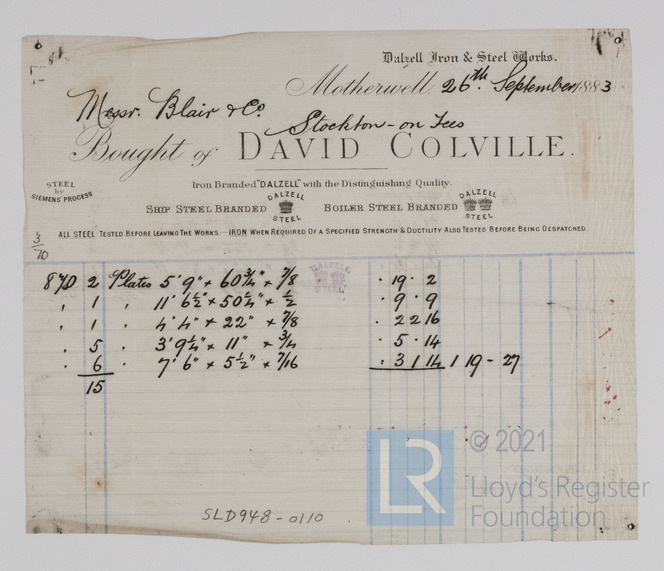 Dalzell Iron & Steel Works.
Motherwell, 26th September 1883
Messr. Blair & Co.
Stockton-on Tees
Bought of DAVID COLVILLE.
Iron Branded "DALZELL" with the Distinguishing Quality.
STEEL by SIEMENS' PROCESS
SHIP STEEL BRANDED DALZELL STEEL BOILER STEEL BRANDED DALZELL STEEL
ALL STEEL TESTED BEFORE LEAVING THE WORKS.—IRON WHEN REQUIRED OF A SPECIFIED STRENGTH & DUCTILITY ALSO TESTED BEFORE BEING DESPATCHED
3/70
DALZELL STEEL
870 2 Plates 5' 9" + 60 3/4" + 7/8 . 19 . 2
, 1 , 11' 6 1/2" + 50 1/4" + 1/2 . 9 . 9
, 1 , 4' 4" + 22" + 7/8 . 2 2 16
. 5 , 3' 9 1/4" + 11" + 3/4 . 5 . 14
. 6 , 7' 6" + 5 1/2" + 7/16 . 3 1 14 1 19 - 27
15
© 2021
LR
Lloyd's Register
Foundation
SLD948-0110